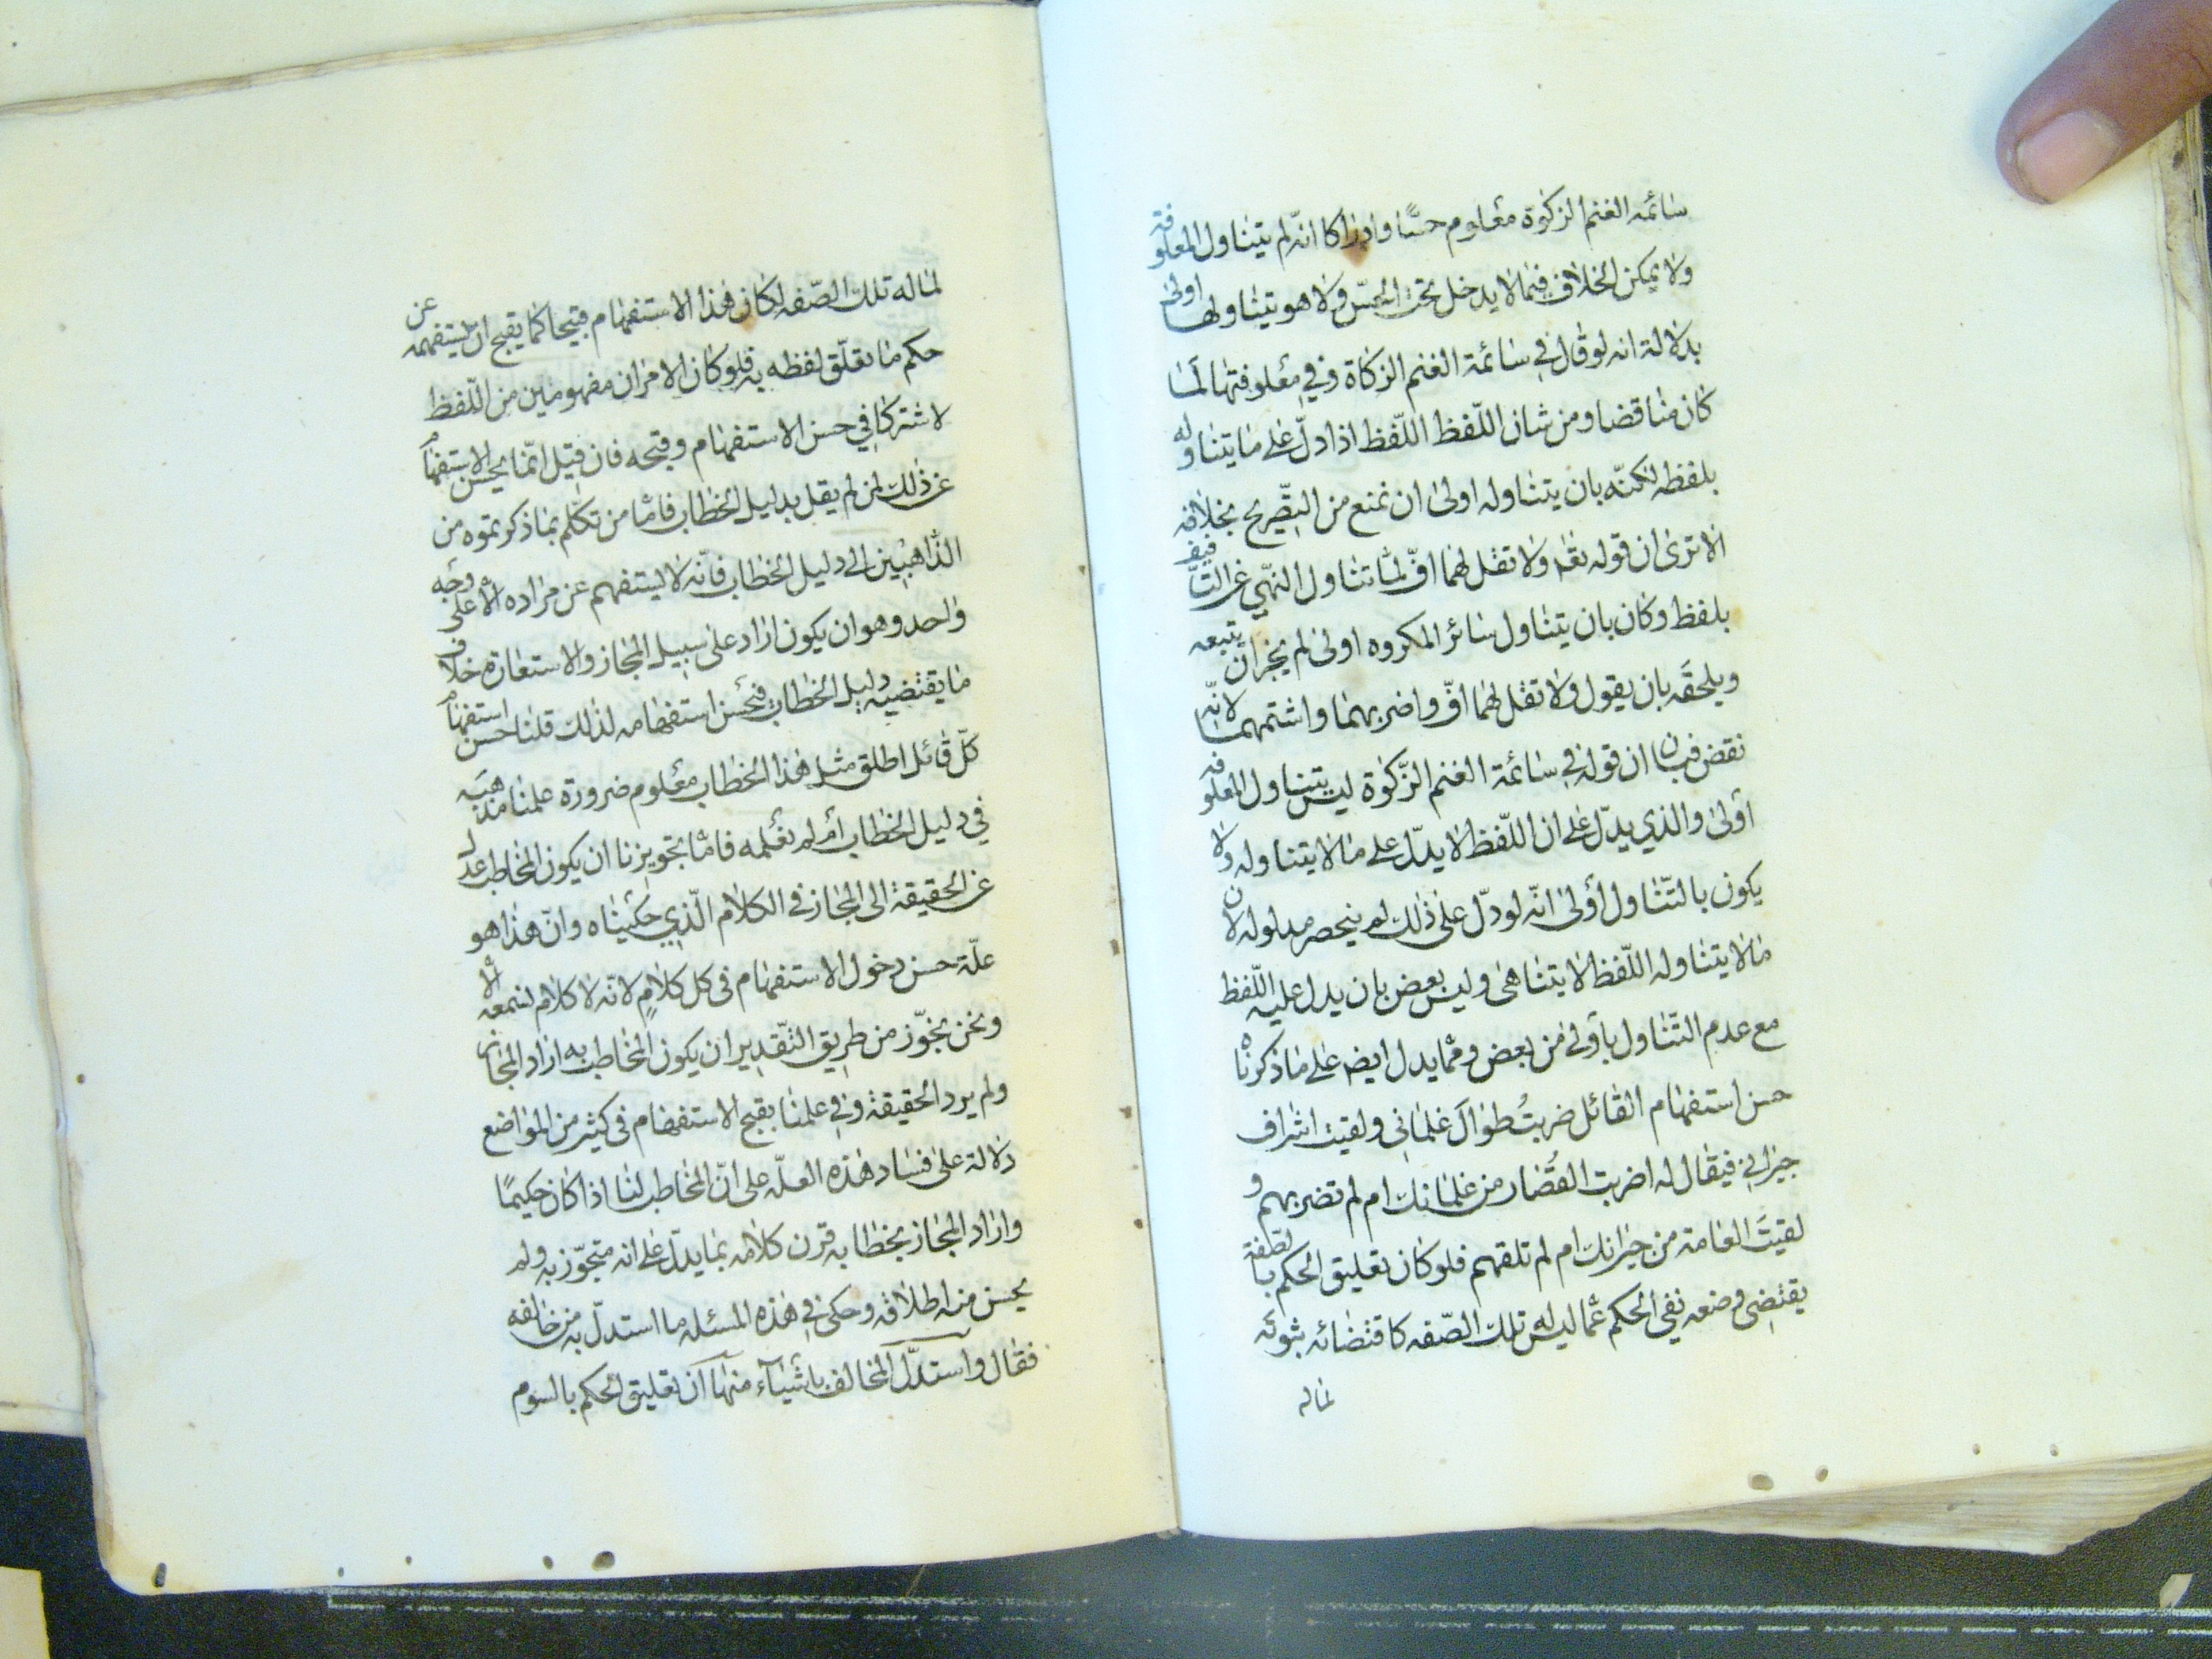 سائمه الغنم الزكوة معلوم حسّا وادراكا انّه لم يتناول المعلوفة
ولا يمكن الخلاف فيما لا يدخل تحت الحسّ ولا هو يتناولها اولى
بدلالة انه لو قال في سائمة الغنم الزكاة وفي معلوفتها لما
كان مناقضا ومن شان اللّفظ اللّفظ اذا دلّ على ما يتناوله
بلفظه لكنّه بان يتناوله اولى ان نمنع من التّصريح بخلافه
الا ترى ان قوله تعٰ ولا تقل لهما افّ لما تناول النّهي عن التّافيف
بلفظ وكان بان يتناول سائر المكروه اولى لم يجز ان يتبعه
ويلحقه بان يقول ولا تقل لهما افّ واضربهما واشتمهما لانّه
نقض فبان ان قوله في سائمة الغنم الزّكوة ليس يتناول المعلوفة
اولى والذي يدلّ على ان اللّفظ لا يدلّ على ما لا يتناوله ولا
يكون بالتّناول أولى انّه لو دلّ على ذلك لم ينحصر مدلوله لان
ما لا يتناوله اللّفظ لا يتناهى وليس بعض بان يدل عليه اللّفظ
مع عدم التّناول باولى من بعض وممّا يدل ايضه على ما ذكرناه
حسن استفهام القائل ضربتُ طوالَ غلماني ولقيت اشراف
جيراني فيقال له اضربت القُصّار من غلمانك ام لم تضربهم و
لقيتَ العامة من جيرانك ام لم تلقهم فلو كان تعليق الحكم بالصّفة
يقتضي وضعه نفي الحكم عمّا ليس له تلك الصّفه كاقتضائه ثبوته
لماله
لما له تلك الصّفه لكان هذا الاستفهام قبيحا كما يقبح ان يستفهمه عن
حكم ما تعلّق لفظه به فلو كان الامران مفهومين من اللّفظ
لاشتركا في حسن الاستفهام وقبحه فان قيل انّما يحسن الاستفهام
عن ذلك لمن لم يقل بدليل الخطاب فامّا من تكلّم بما ذكرتموه من
الذّاهبين الى دليل الخطاب فانّه لا يستفهم عن مراده الّا على وجه
واحد وهو ان يكون اراد على سبيل المجاز والاستعارة خلاف
ما يقتضيه دليل الخطاب فحسن استفهامه لذلك قلنا حسن استفهام
كلّ قائل اطلق مثل هذا الخطاب معلوم ضرورة علمنا مذهبه
في دليل الخطاب أم لم نعلمه فامّا تجويزنا ان يكون المخاطب عدل
عن الحقيقة الى المجاز في الكلام الّذي حكيناه وانّ هذا هو
علّة حسن دخول الاستفهام في كل كلامٍ لانّه لا كلام نسمعه الّا
ونحن نجوّز من طريق التّقدير ان يكون المخاطب به اراد المجاز
ولم يرد الحقيقة وفي علمنا بقبح الاستفهام في كثير من المواضع
دلالة على فساد هذه العلّه على انّ المخاطب لنا اذا كان حكيمًا
واراد المجاز بخطابه قرن كلامه بما يدلّ على انه متجوّز به ولم
يحسن منه اطلاقه وحكى في هذه المسئله ما استدلّ به من خالفه
فقال واستدلّ المخالف باشياء منها ان تعليق الحكم بالسوم